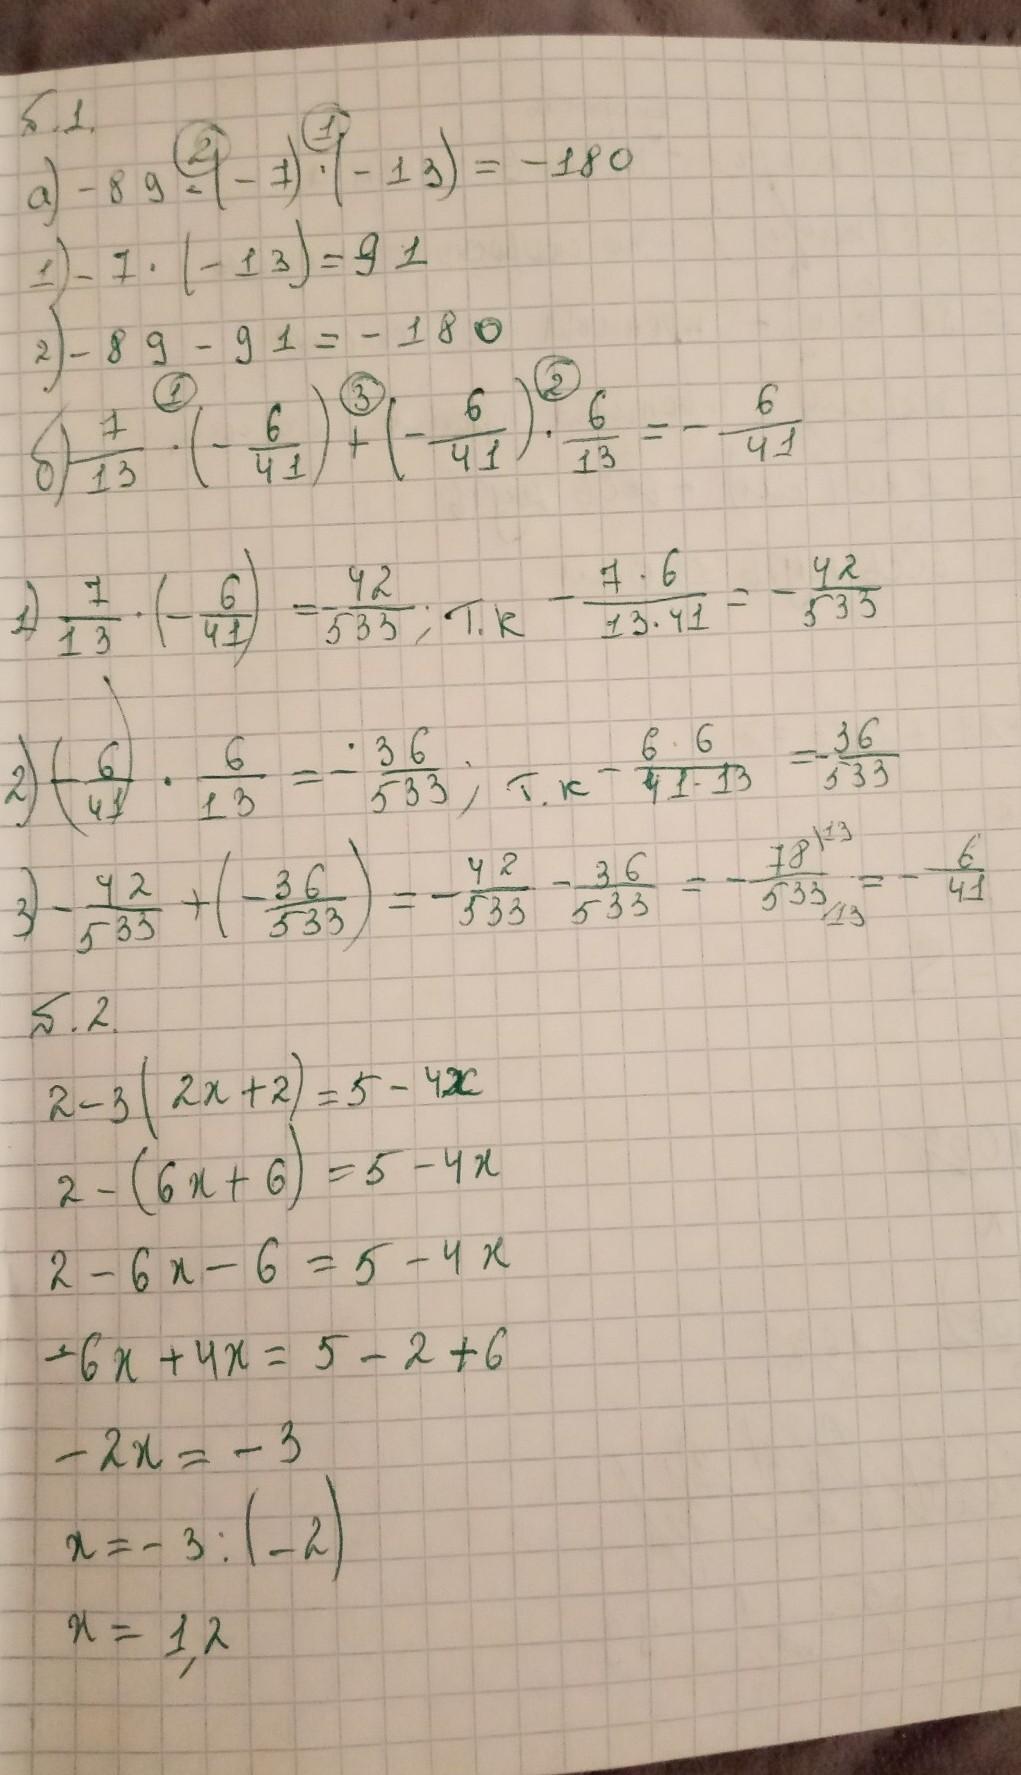 Б.1.
② ①
а) -89 - (-7) · (-13) = -180
1) -7 · (-13) = 91
2) -89 - 91 = -180
① ③ ②
б) 7/13 · (-6/41) + (-6/41) · 6/13 = -6/41
1) 7/13 · (-6/41) = -42/533; т.к -7·6/13·41 = -42/533
2) (-6/41) · 6/13 = -36/533; т.к -6·6/41·13 = -36/533
3) -42/533 + (-36/533) = -42/533 - 36/533 = -78\13/533/13 = -6/41
Б.2.
2-3(2x+2)=5-4x
2-(6x+6)=5-4x
2-6x-6=5-4x
-6x+4x=5-2+6
-2x=-3
x=-3:(-2)
x=1,2